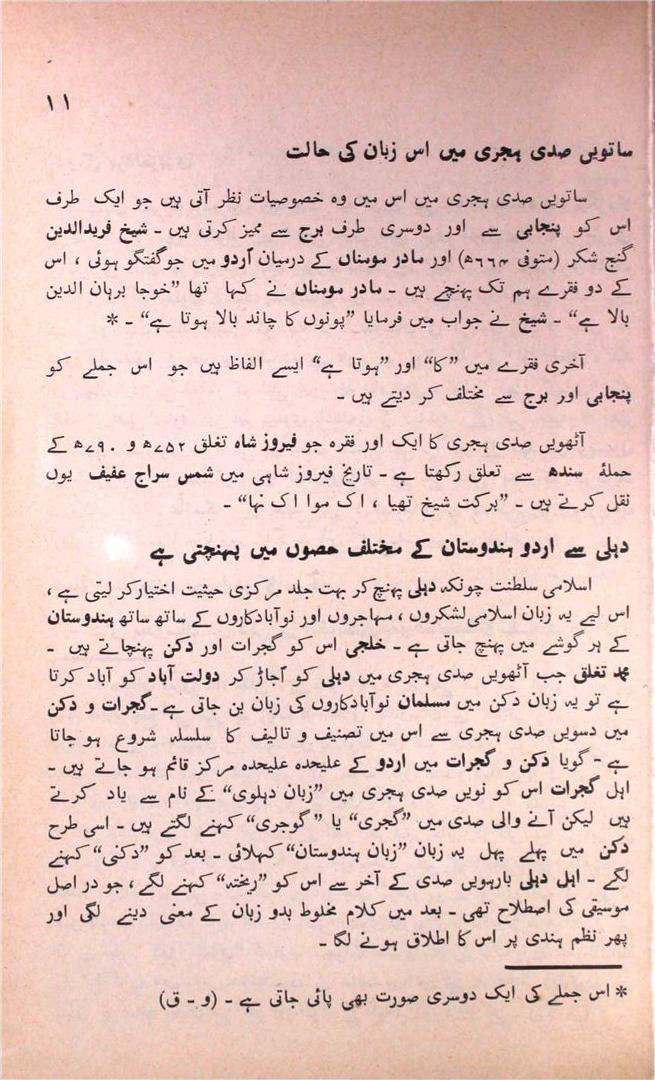 ۱۱
ساتویں صدی ہجری میں اس زبان کی حالت
ساتویں صدی ہجری میں اس میں وہ خصوصیات نظر آتی ہیں جو ایک طرف
اس کو پنجابی سے اور دوسری طرف برج سے ممیز کرتی ہیں ۔ شیخ فریدالدین
گنج شکر (متوفی ۶۶۴ھ) اور مادر مومناں کے درمیان اُردو میں جو گفتگو ہوئی ، اس
کے دو فقرے ہم تک پہنچے ہیں ۔ مادر مومناں نے کہا تھا ”خوجا برہان الدین
بالا ہے“ ۔ شیخ نے جواب میں فرمایا ”پونوں کا چاند بالا ہوتا ہے“ ۔ *
آخری فقرے میں ”کا“ اور ”ہوتا ہے“ ایسے الفاظ ہیں جو اس جملے کو
پنجابی اور برج سے مختلف کر دیتے ہیں ۔
آٹھویں صدی ہجری کا ایک اور فقرہ جو فیروز شاہ تغلق ۷۵۲ھ و ۷۹۰ھ کے
حملۂ سندھ سے تعلق رکھتا ہے ۔ تاریخ فیروز شاہی میں شمس سراج عفیف یوں
نقل کرتے ہیں ۔ ”برکت شیخ تھیا ، اک موا اک نہا“ ۔
دہلی سے اردو ہندوستان کے مختلف حصوں میں پہنچتی ہے
اسلامی سلطنت چونکہ دہلی پہنچ کر بہت جلد مرکزی حیثیت اختیار کر لیتی ہے ،
اس لیے یہ زبان اسلامی لشکروں ، مہاجروں اور نوآبادکاروں کے ساتھ ساتھ ہندوستان
کے ہر گوشے میں پہنچ جاتی ہے ۔ خلجی اس کو گجرات اور دکن پہنچاتے ہیں ۔
محمد تغلق جب آٹھویں صدی ہجری میں دہلی کو اُجاڑ کر دولت آباد کو آباد کرتا
ہے تو یہ زبان دکن میں مسلمان نوآبادکاروں کی زبان بن جاتی ہے ۔ گجرات و دکن
میں دسویں صدی ہجری سے اس میں تصنیف و تالیف کا سلسلہ شروع ہو جاتا
ہے ۔ گویا دکن و گجرات میں اردو کے علیحدہ علیحدہ مرکز قائم ہو جاتے ہیں ۔
اہل گجرات اس کو نویں صدی ہجری میں ”زبان دہلوی“ کے نام سے یاد کرتے
ہیں لیکن آنے والی صدی میں ”گجری“ یا ”گوجری“ کہنے لگتے ہیں ۔ اسی طرح
دکن میں پہلے پہل یہ زبان ”زبان ہندوستان“ کہلائی ۔ بعد کو ”دکنی“ کہنے
لگے ۔ اہل دہلی بارہویں صدی کے آخر سے اس کو ”ریختہ“ کہنے لگے ، جو در اصل
موسیقی کی اصطلاح تھی ۔ بعد میں کلام مخلوط بدو زبان کے معنی دینے لگی اور
پھر نظم ہندی پر اس کا اطلاق ہونے لگا ۔
* اس جملے کی ایک دوسری صورت بھی پائی جاتی ہے ۔ (و ۔ ق)